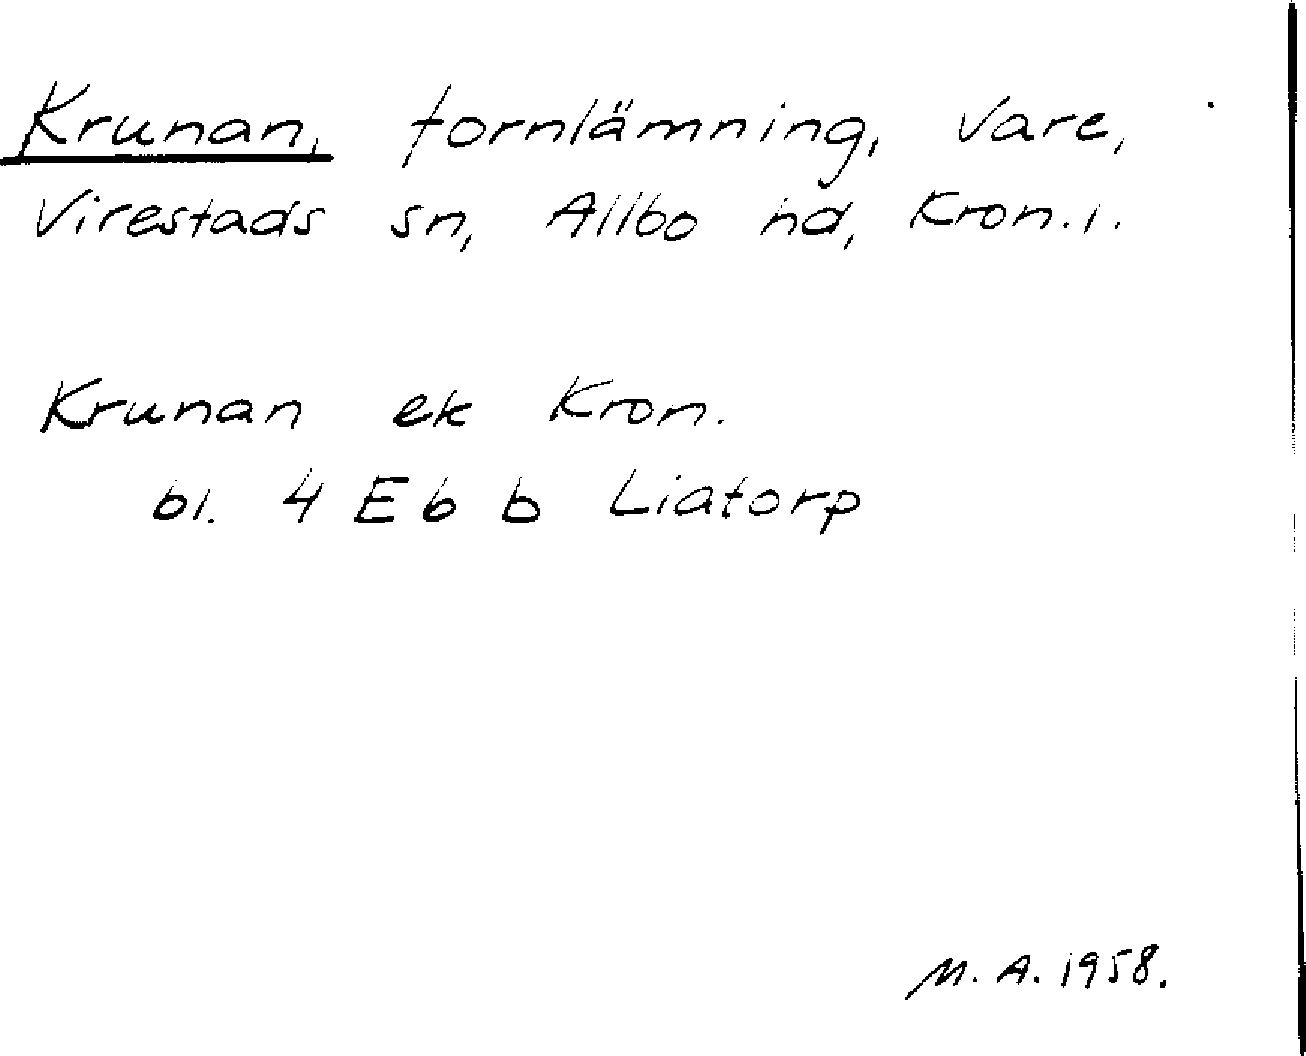 Krunan, fornlämning, Vare,
Virestads sn, Allbo hd, Kron. l.
Krunan ek Kron.
bl. 4 E 6 b Liatorp
M. A. 1958.